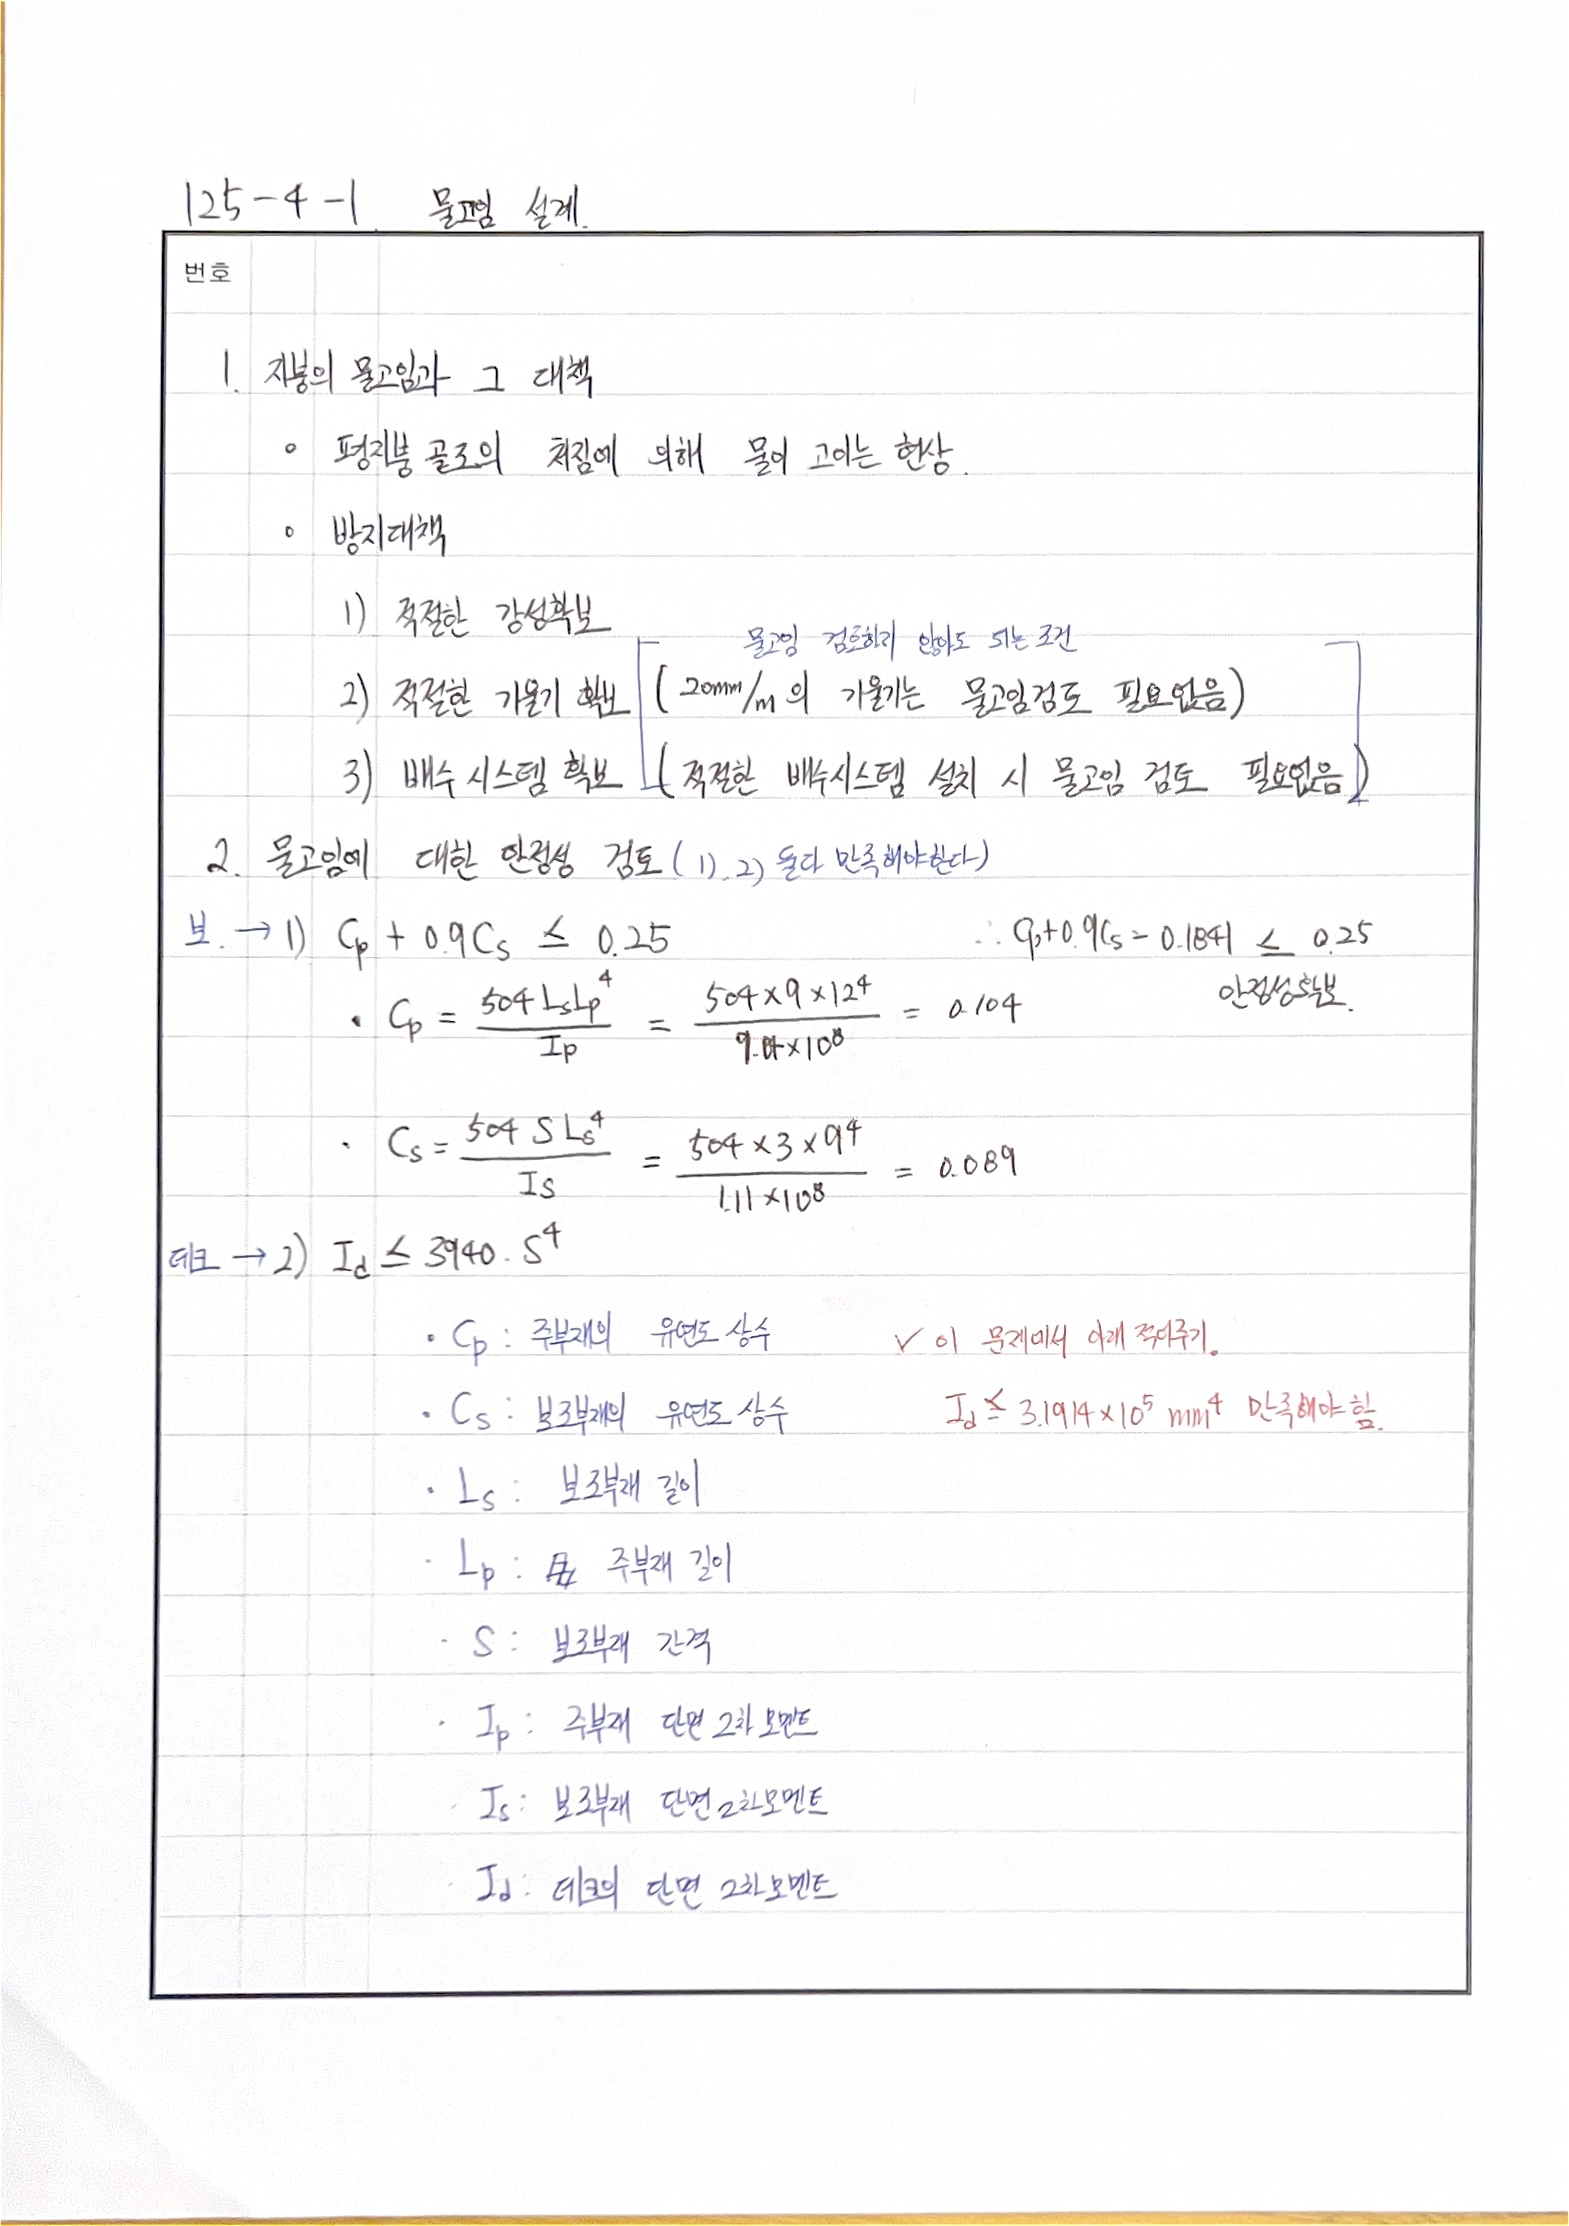 125-4-1. 물고임 설계.
번호
1. 지붕의 물고임과 그 대책
◦ 평지붕 골조의 처짐에 의해 물이 고이는 현상.
◦ 방지대책
1) 적절한 강성확보
물고임 검토하지 않아도 되는 조건
2) 적절한 기울기 확보 (20mm/m의 기울기는 물고임검토 필요없음)
3) 배수시스템 확보 (적절한 배수시스템 설치 시 물고임 검토 필요없음)
2. 물고임에 대한 안정성 검토 (1), 2) 둘다 만족해야한다)
보. → 1) Cp + 0.9Cs ≤ 0.25 ∴ Cp+0.9Cs = 0.1841 ≤ 0.25
안정성확보.
• Cp = 504 Ls Lp⁴ / Ip = 504×9×12⁴ / ×10⁸ = 0.104
· Cs = 504 S Ls⁴ / Is = 504×3×9⁴ / 1.11×10⁸ = 0.089
데크 → 2) Id ≤ 3940·S⁴
• Cp : 주부재의 유연도 상수 ✓ 이 문제에서 아래 적어주기.
• Cs : 보조부재의 유연도 상수 Id ≤ 3.1914×10⁵ mm⁴ 만족해야 함.
• Ls : 보조부재 길이
· Lp : 주부재 길이
· S : 보조부재 간격
· Ip : 주부재 단면2차모멘트
· Is : 보조부재 단면2차모멘트
· Id : 데크의 단면 2차모멘트